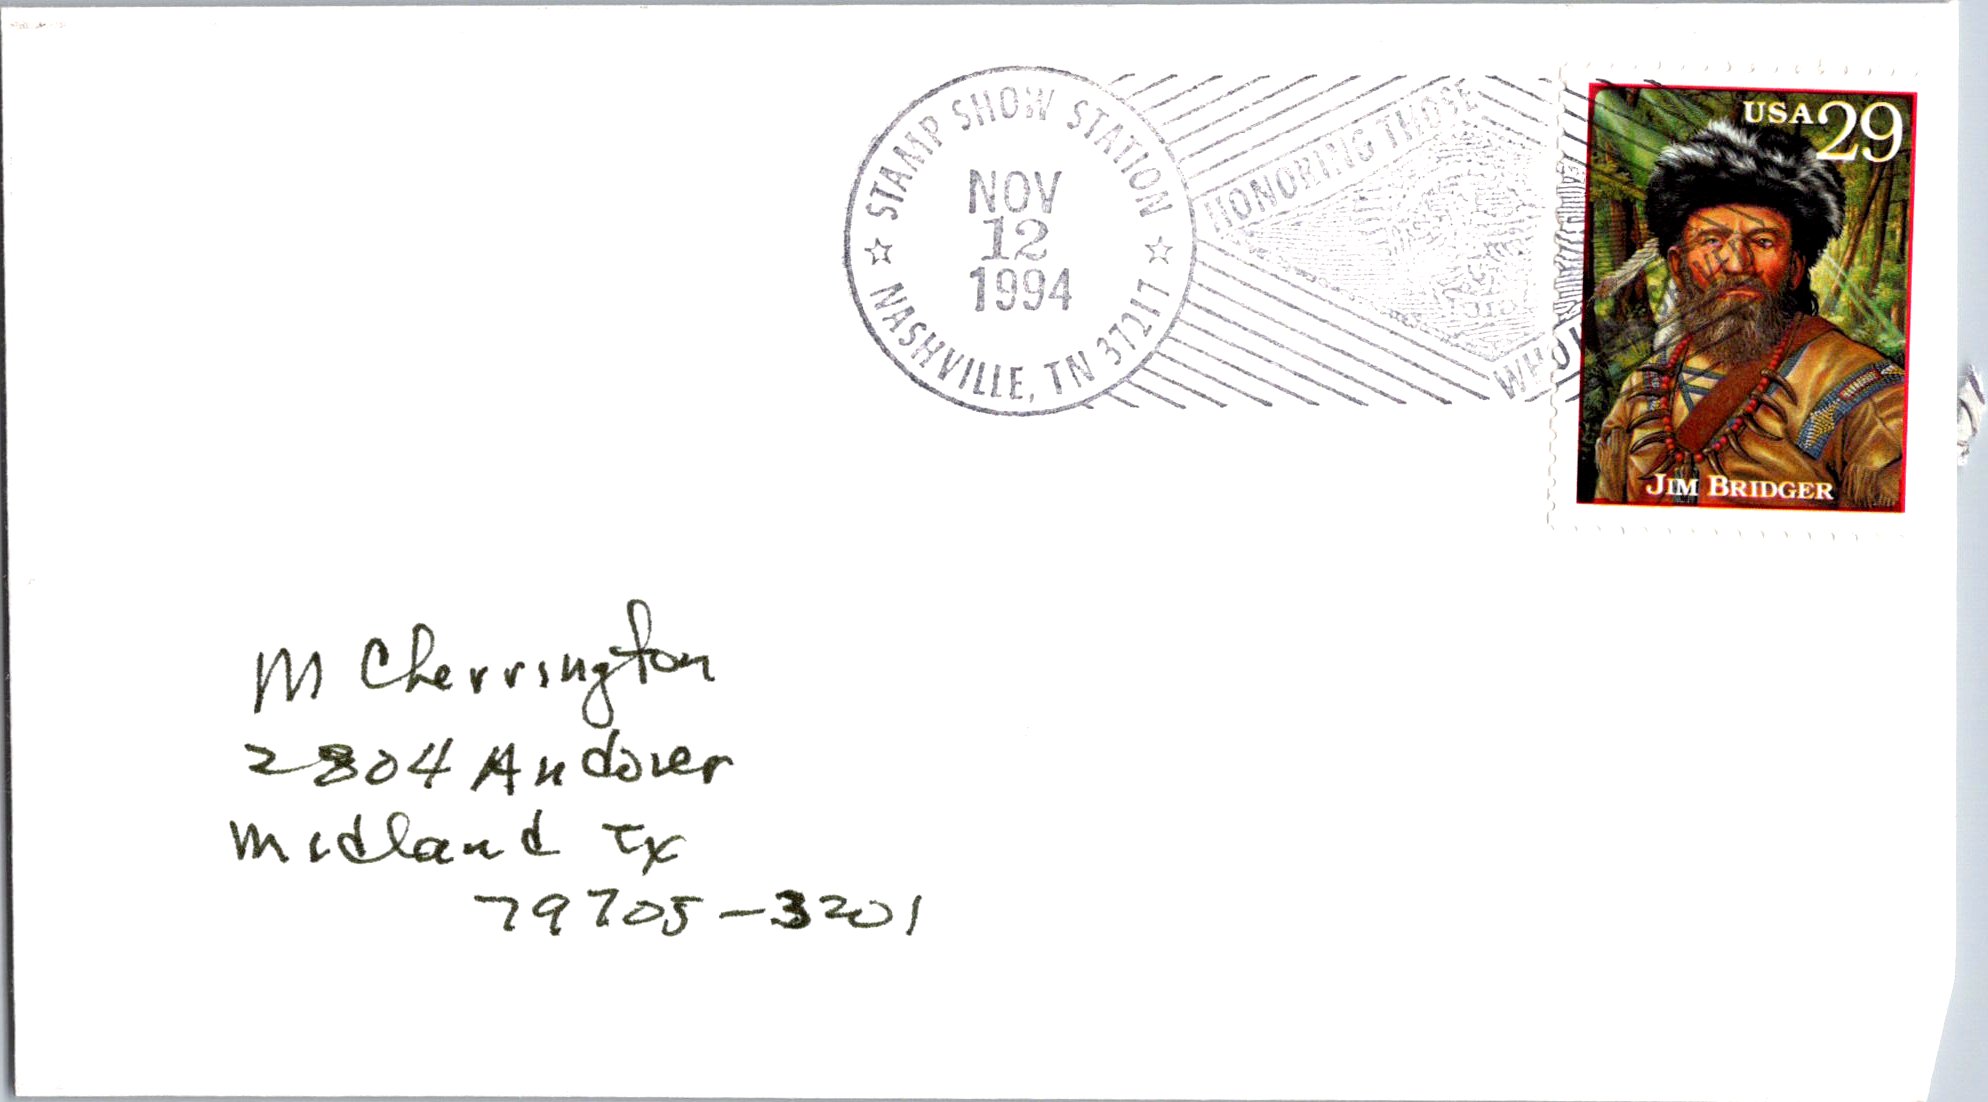 STAMP SHOW STATION
NOV
12
1994
NASHVILLE, TN 37217
HONORING THOSE
WHO
USA 29
JIM BRIDGER
M Cherrington
2804 Andover
Midland Tx
79705-3201